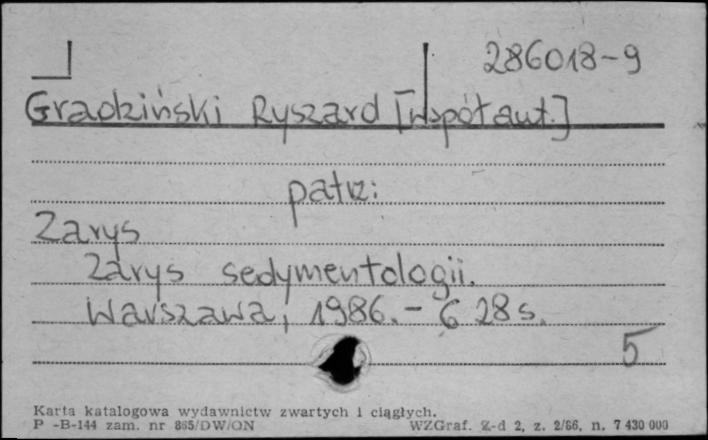 286018-9
Gradziński Ryszard [współaut.]
patrz:
Zarys
Zarys sedymentologii.
Warszawa, 1986. - 628 s.
5
Karta katalogowa wydawnictw zwartych i ciągłych.
P -B-144 zam. nr 865/DW/ON WZGraf. Z-d 2, z. 2/66, n. 7 430 000